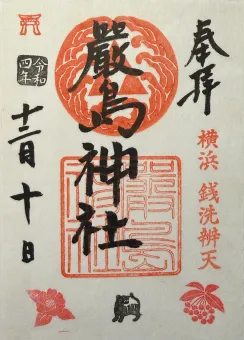 奉拝
横浜 銭洗辨天
嚴島神社
令和四年
十二月十日